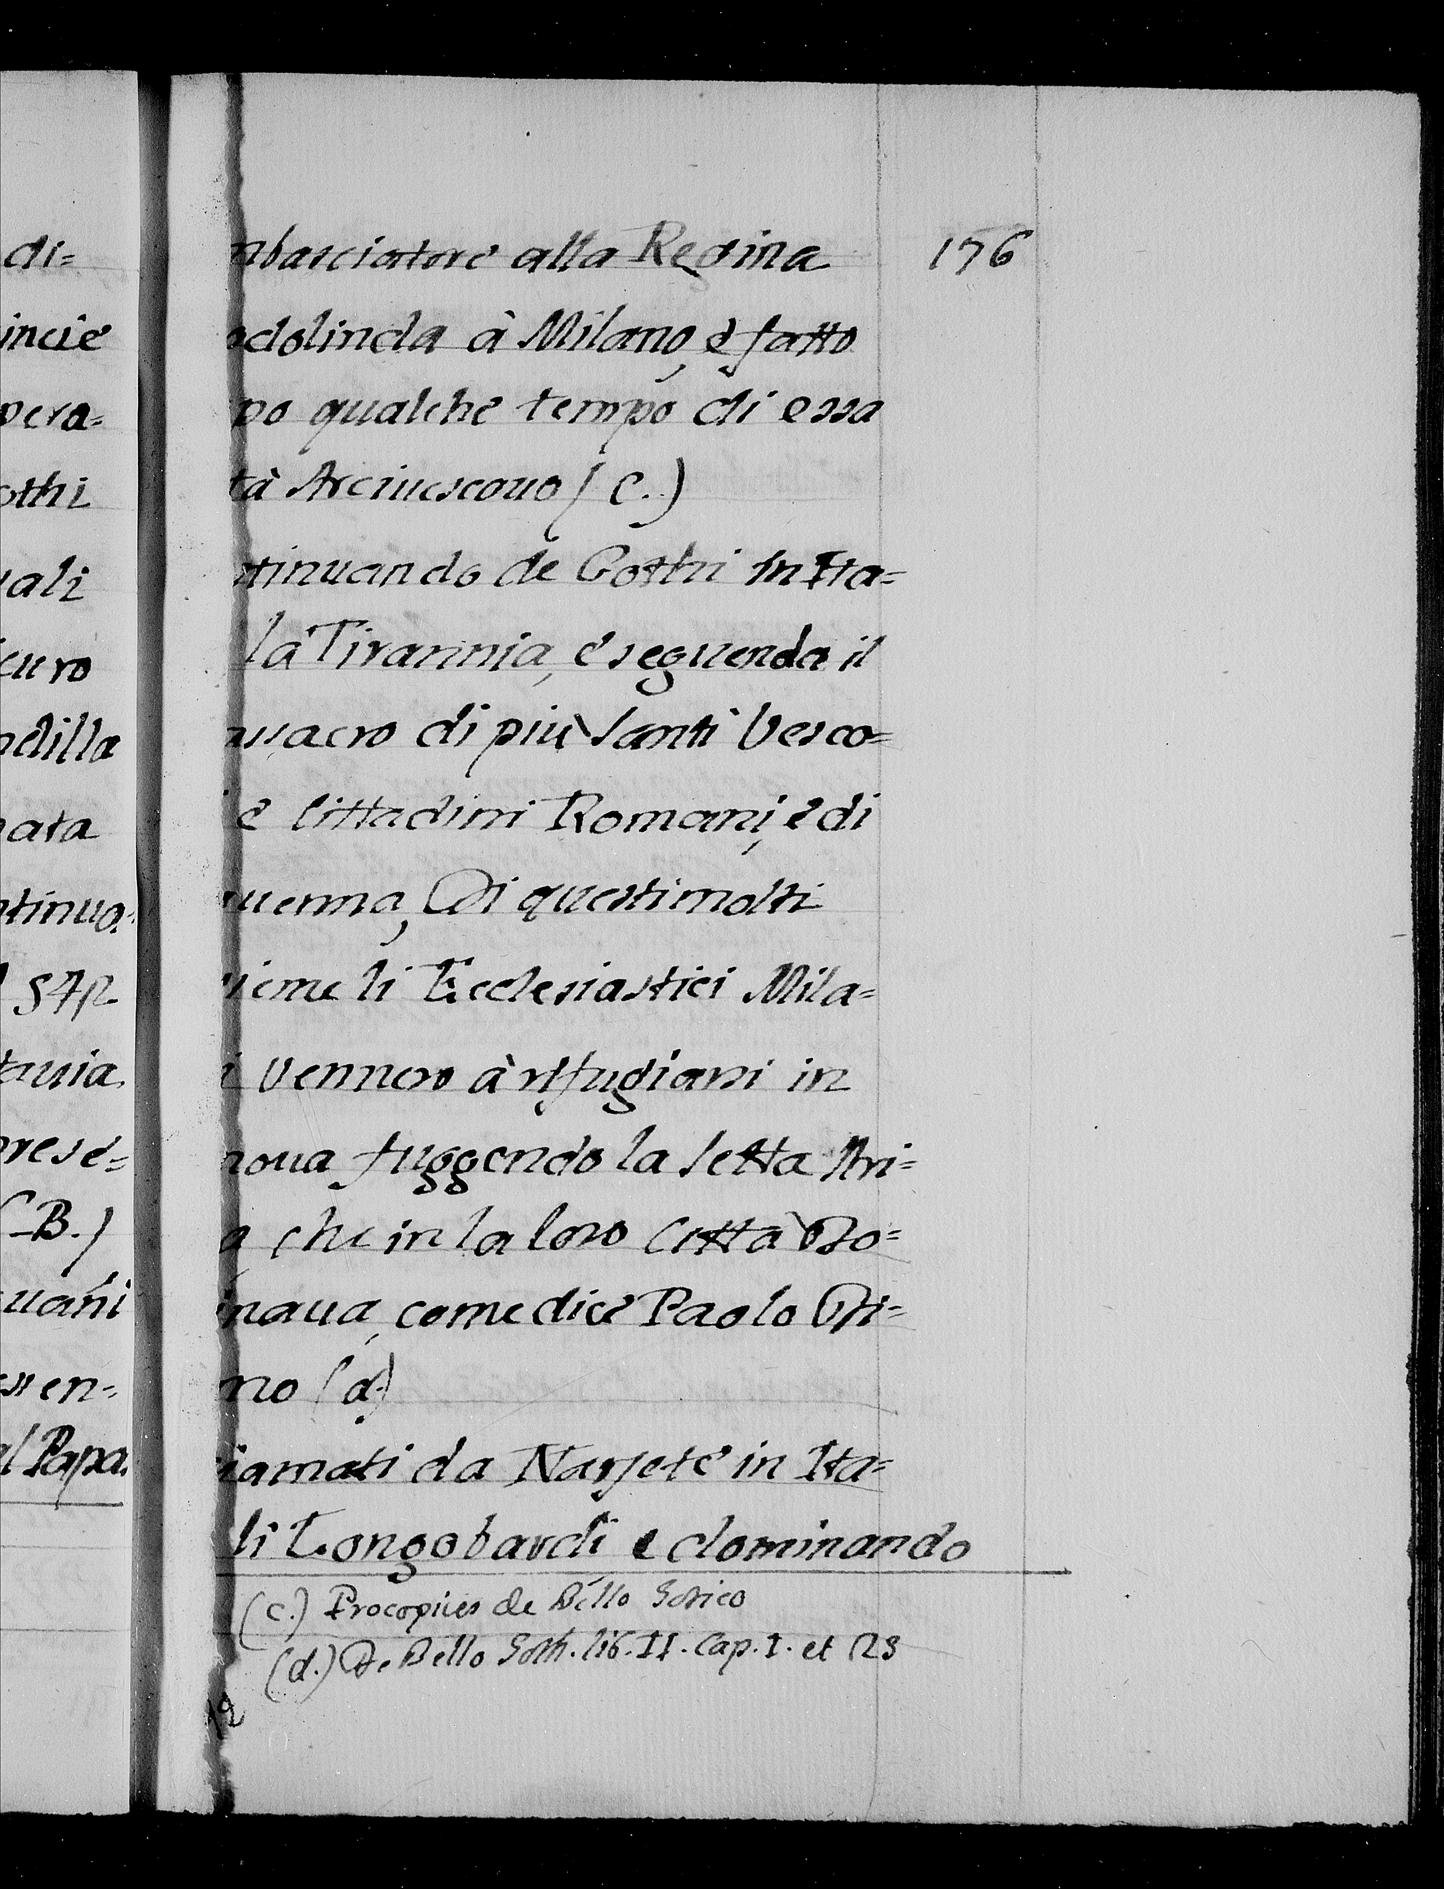 di=
incie
pera=
othi
uali
curo
ndilla
nata
ntinua=
tauia
prese=
(B.)
uani
essen=
al Papa
176
mbasciatore alla Regina
odolinda à Milano, è fatto
po qualche tempo di essa
tà Arciuescouo (C.)
ntinuando de Gothi in Ita=
la Tirannia, è seguendo il
assacro di più Santi Vesco=
i è Cittadini Romani, è di
auenna, Di questi molti
sieme li Ecclesiastici Mila=
i vennero à rifugiarsi in
noua fuggendo la setta Arri=
a che in la loro Città Do=
inaua, come dice Paolo Pri=
no (d.)
iamati da Narsete in Ita=
li Longobardi e dominando
(c.) Procopius de Bello Gotico
(d.) De Bello Goth. lib. II. Cap. I. et 23